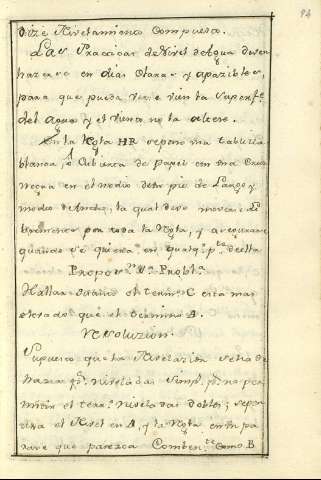 94
dize Nivelamiento Compuesto.
Las Practicas de Nivel de Agua deven
hazerse en dias Claros y apazibles,
para que pueda verse bien la Superf.e
del Agua, y el viento no la altere.
En la Regla HR se pone una tablilla
blanca, o Cubierta de Papel con una Cruz
negra en el medio de un pie de Largo y
medio de Ancho; la qual debe moverse
libremente por toda la Regla, y asegurarse
quando se quiera en qualq.a p.te de ella
Propos.n Probl.a
Hallar quanto el termino C esta mas
elevado que el termino B.
Resoluzion.
Supuesto que la Nivelazion se ha de
hazer niveladas Simp.s no per
miten el terr.o niveladas dobles;
el Nivel en A, y la Regla
que paresca Comben.te como B